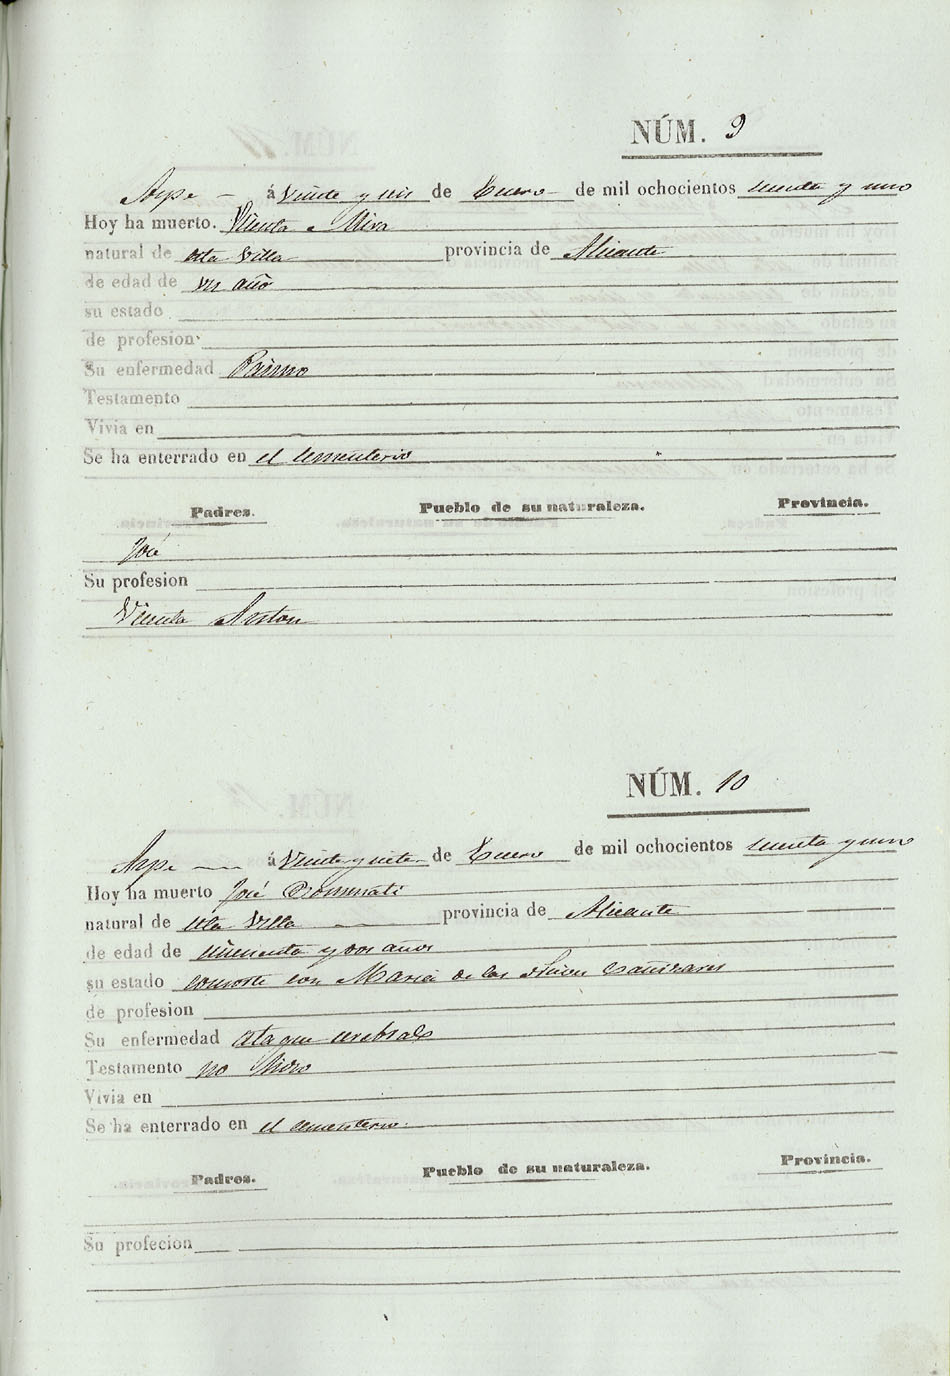 NÚM. 9
Aspe á Veinte y seis de Enero de mil ochocientos sesenta y uno
Hoy ha muerto. Vicenta Mira
natural de esta Villa provincia de Alicante
de edad de un año
su estado
de profesion
Su enfermedad Pasmo
Testamento
Vivia en
Se ha enterrado en el Cementerio
Padres. Pueblo de su naturaleza. Provincia.
José
Su profesion
Vicenta
NÚM. 10
Aspe á Veinte y siete de Enero de mil ochocientos sesenta y uno
Hoy ha muerto José
natural de esta Villa provincia de Alicante
de edad de cincuenta y dos años
su estado consorte con Maria de las Nieves Cañizares
de profesion
Su enfermedad ataque cerebral
Testamento no hizo
Vivia en
Se ha enterrado en el cementerio
Padres. Pueblo de su naturaleza. Provincia.
Su profecion